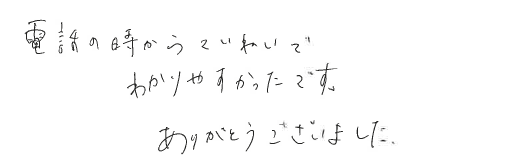 電話の時からていねいで
わかりやすかったです。
ありがとうございました。